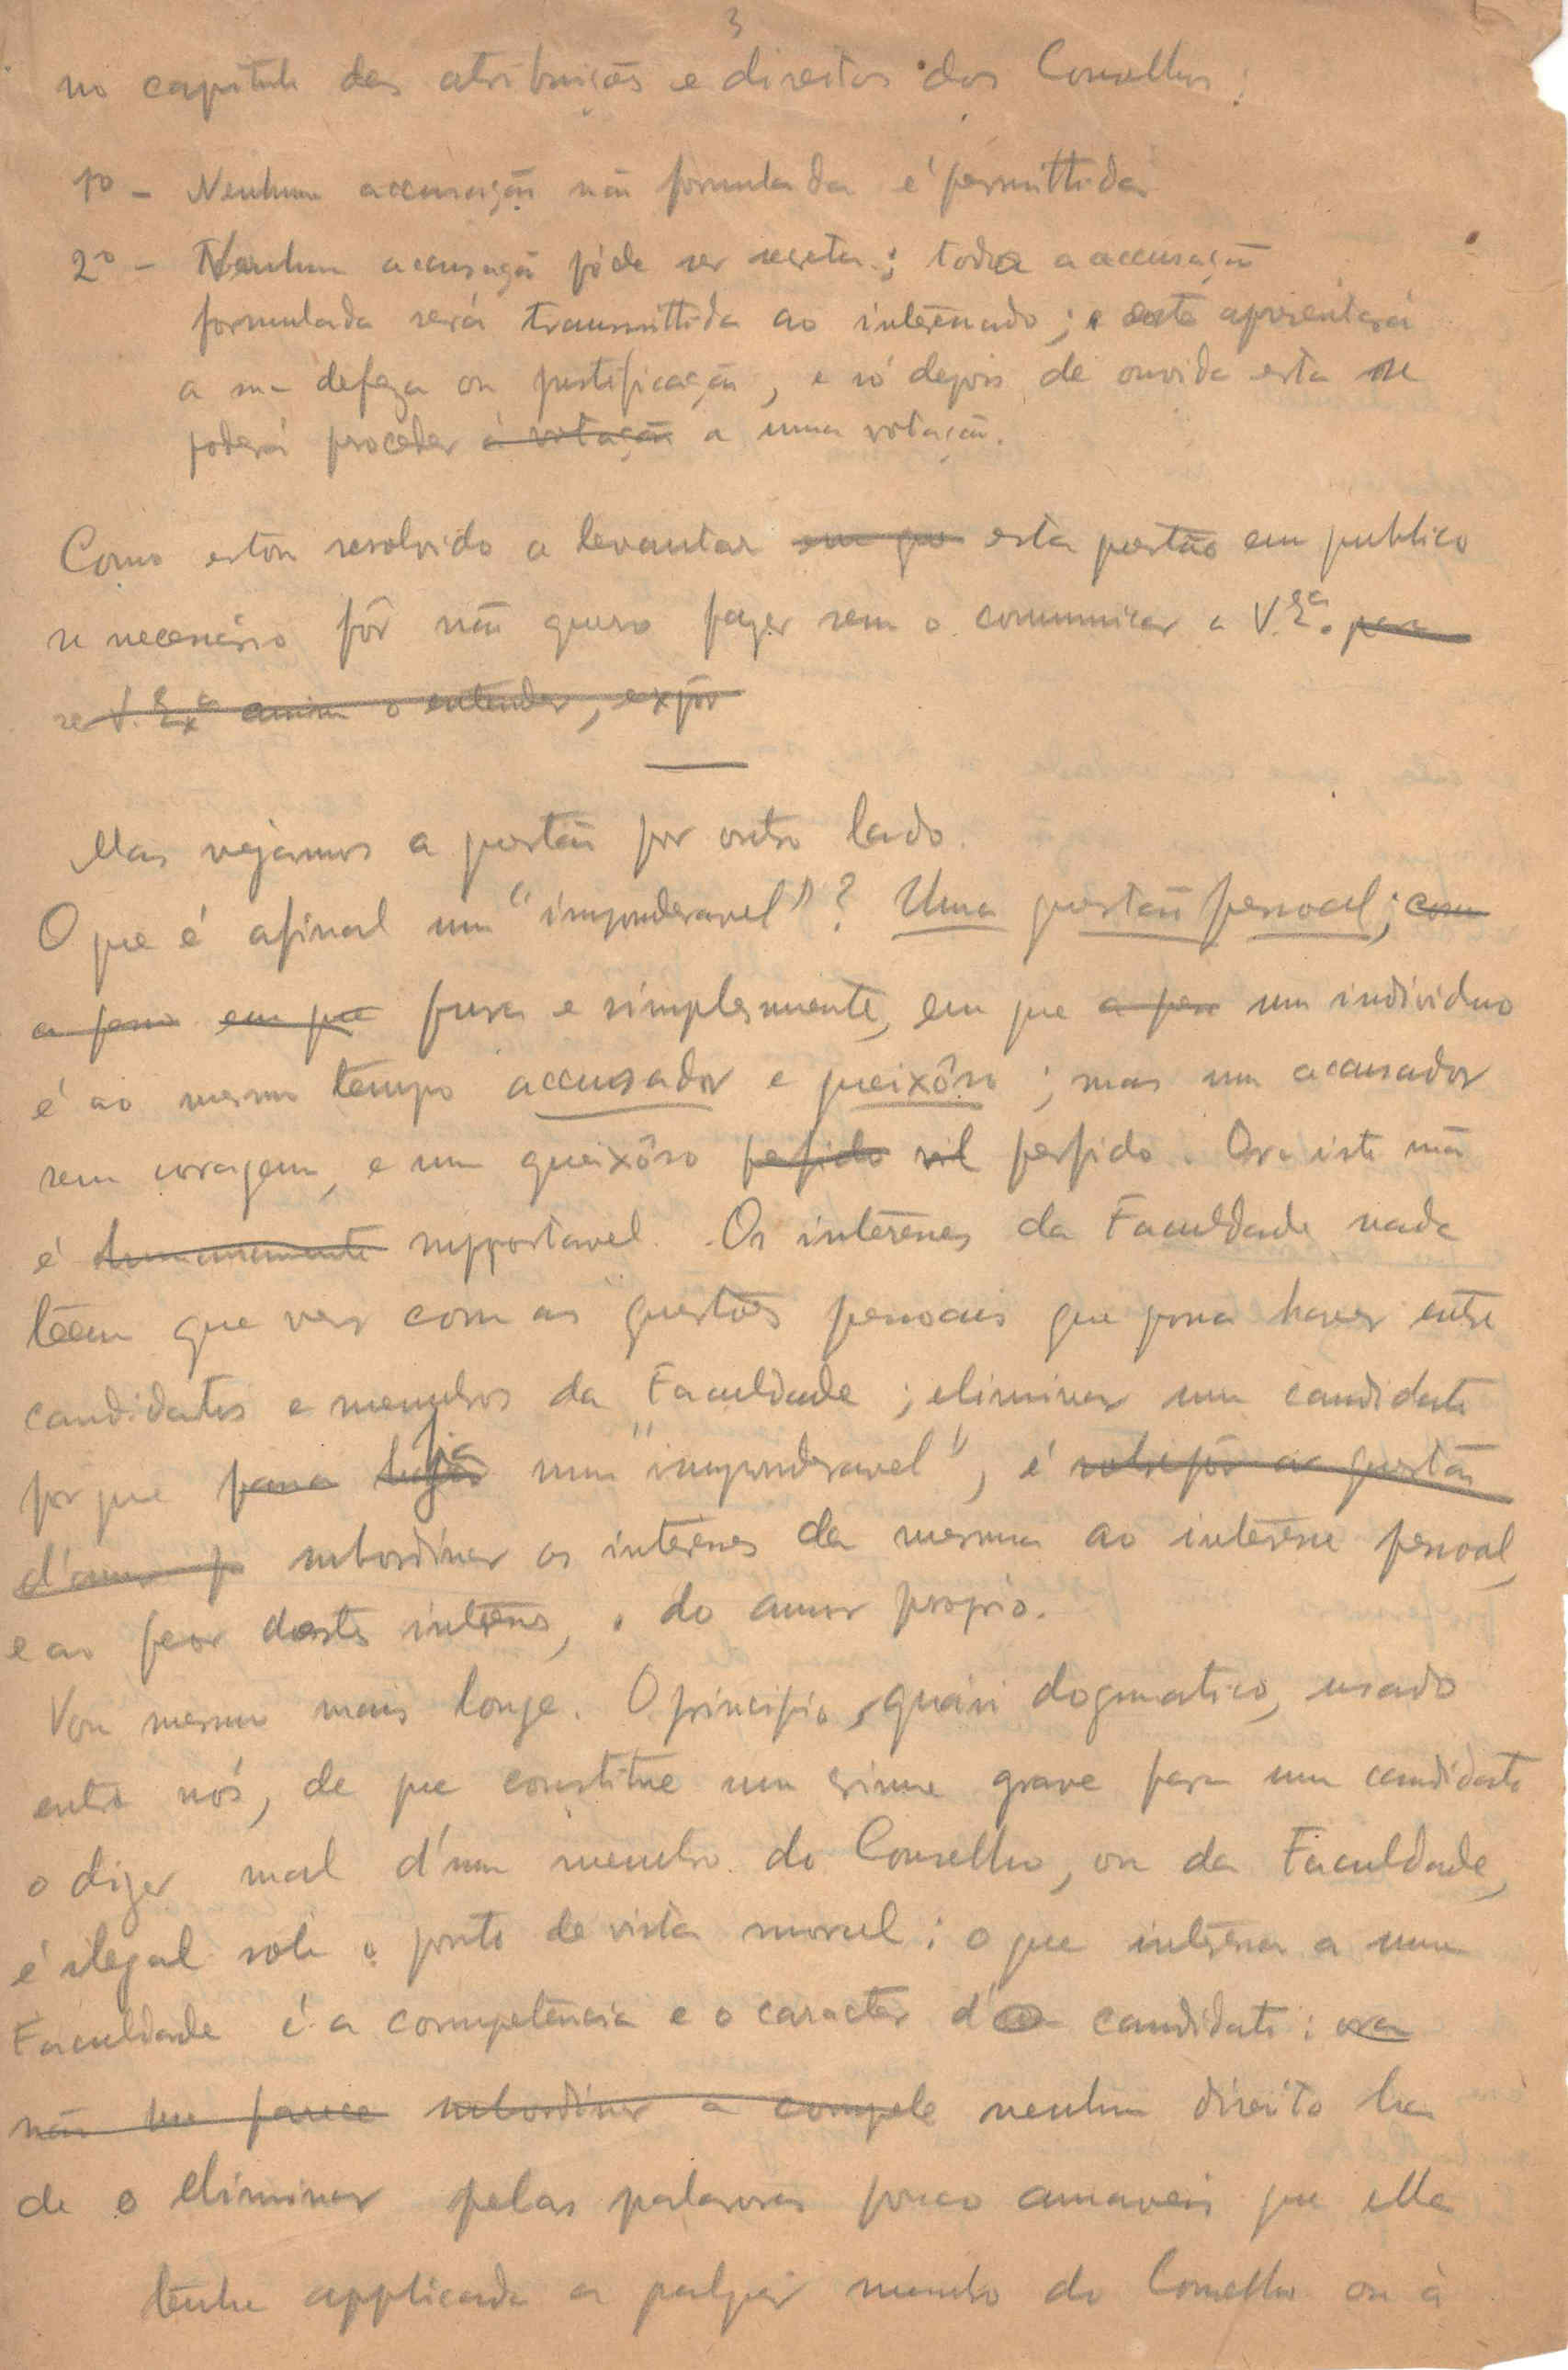 3
no capitulo das atribuições e direitos dos Conselhos:
1º - Nenhuma accusação não formulada é permittida
2º - Nenhuma accusação póde ser secreta; toda a accusação
formulada será transmittida ao interessado; e este apresentará
a sua defeza ou justificação, e só depois de ouvida esta se
poderá proceder á votação a uma votação.
Como estou resolvido a levantar em que esta questão em publico
se necessário fôr não quero fazer sem o comunicar a V. Exª. para
se V. Exª assim o entender, expôr
Mas vejamos a questão por outro lado.
O que é afinal um "imponderavel"? Uma questão pessoal; com
a pess em que pura e simplesmente, em que a pess um individuo
é ao mesmo tempo accusador e queixôso; mas um accusador
sem coragem, e um queixôso perfido vil perfido. Ora isto não
é humanamente supportavel. Os interêsses da Faculdade nada
têem que ver com as questões pessoais que possa haver entre
candidatos e membros da Faculdade; eliminar um candidato
por que possa haja um "imponderavel", é sobrepôr a questão
d'amor p subordinar os interêsses da mesma ao interêsse pessoal,
e ao peor dêstes interêsses, o do amor proprio.
Vou mesmo mais longe. O principio, quási dogmatico, usado
entre nós, de que constitue um crime grave para um candidato
o dizer mal d'um membro do Conselho, ou da Faculdade,
é ilegal sob o ponto de vista moral; o que interêssa a uma
Faculdade é a competência e o caracter do candidato; ora
não me parece subordinar a compete nenhum direito ha
de o eliminar pelas palavras pouco amaveis que elle
tenha applicado a qualquer membro do Conselho ou à